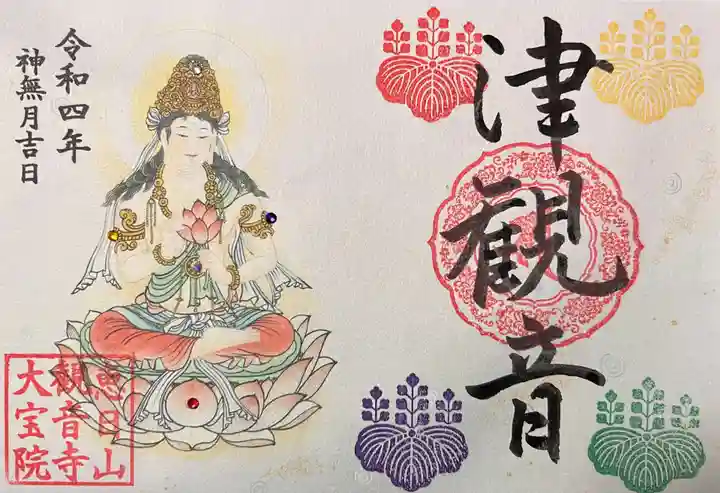 津観音
令和四年
神無月吉日
恵日山
観音寺
大宝院